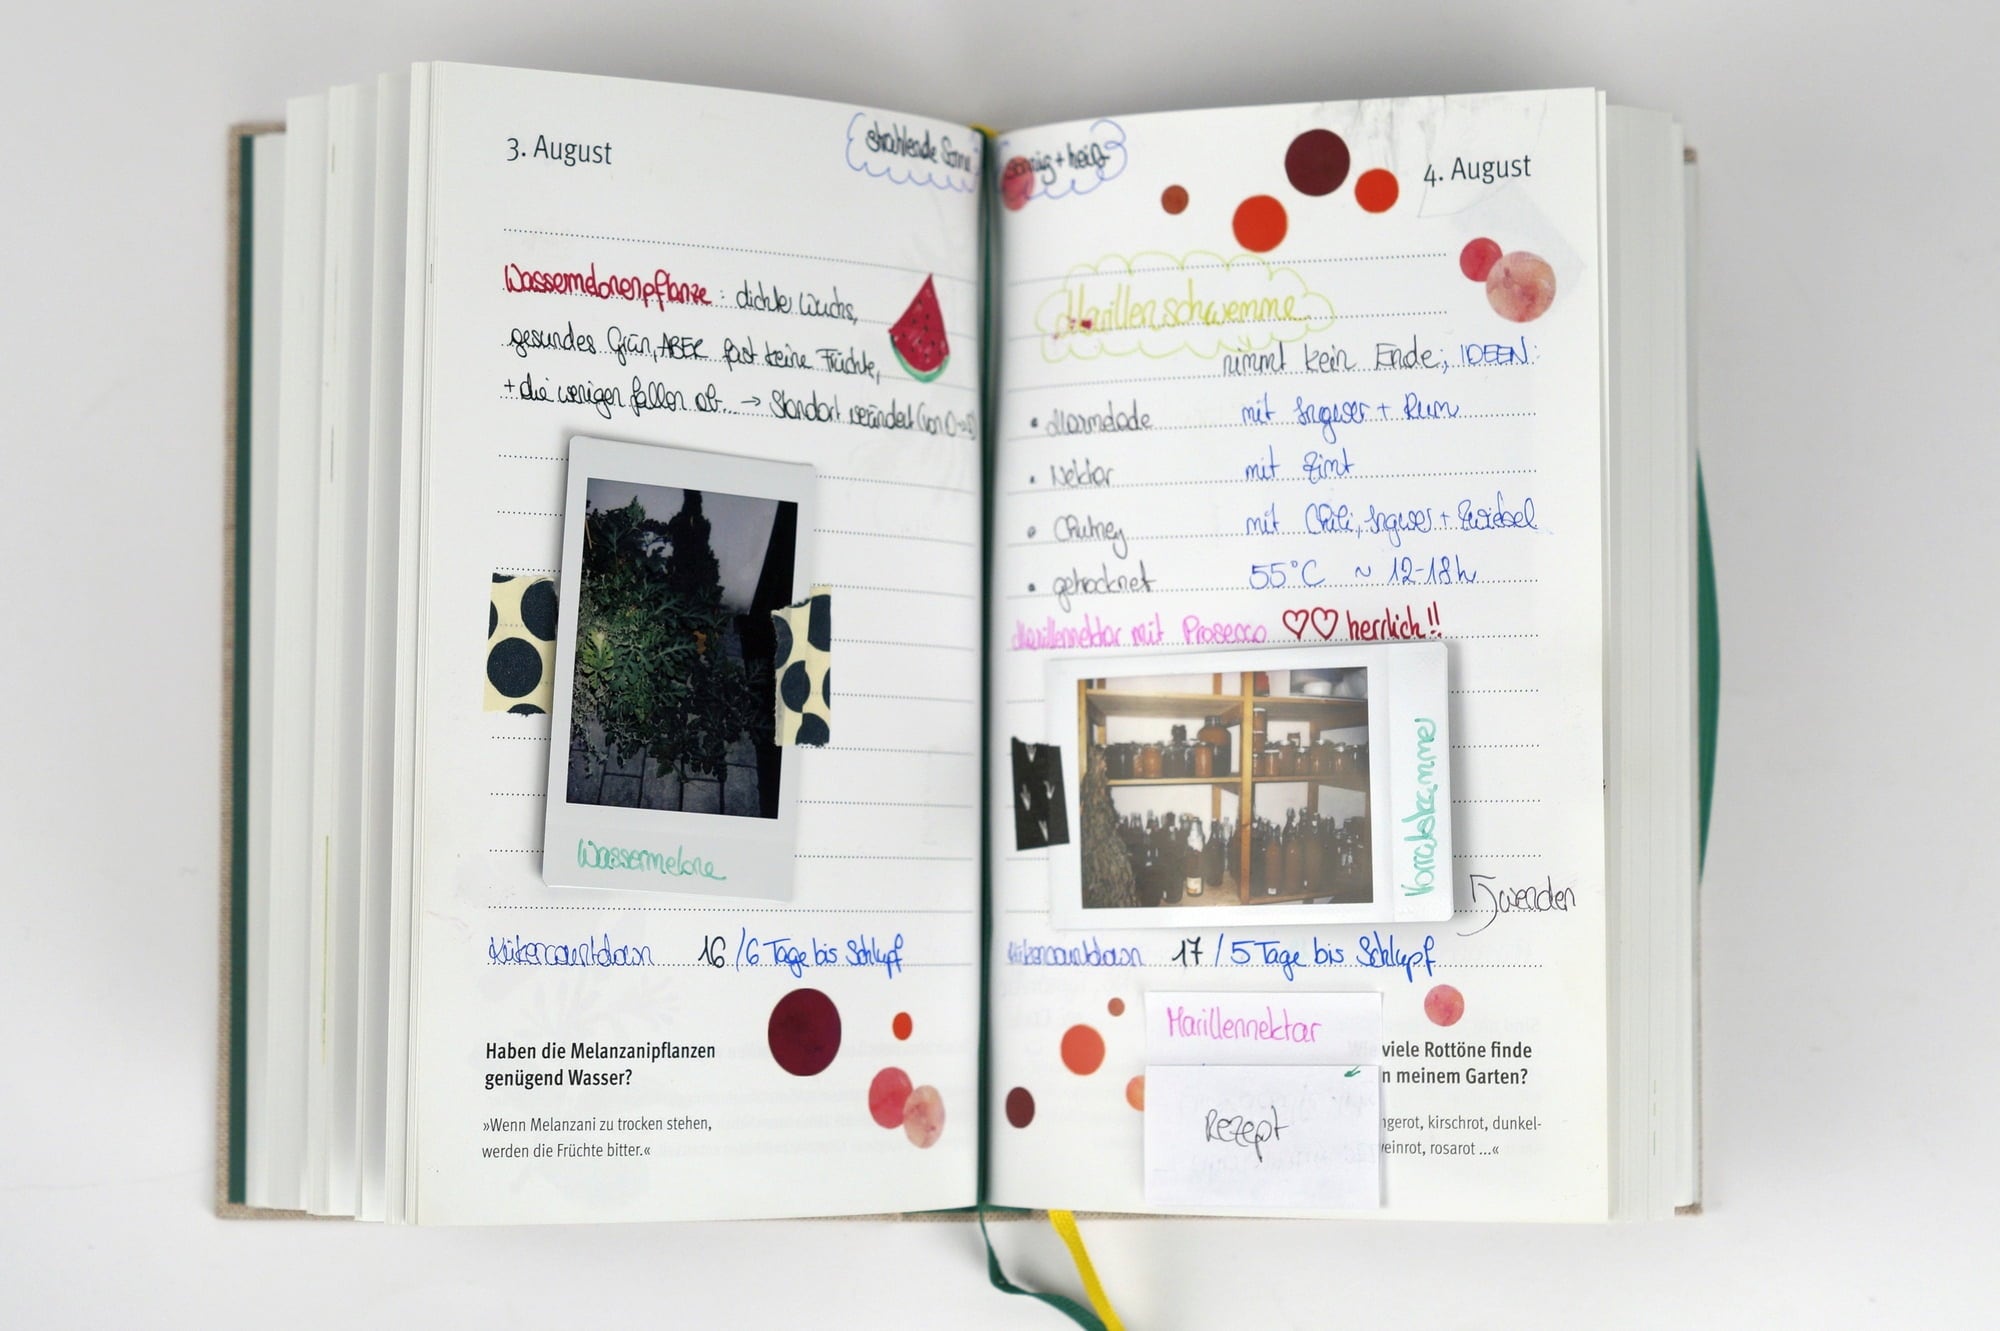 3. August
strahlende Sonne
Wassermelonenpflanze: dichter Wuchs,
gesundes Grün, ABER fast keine Früchte,
+ die wenigen fallen ab... → Standort verändert (von
Wassermelone
Kükencountdown 16 / 6 Tage bis Schlupf
Haben die Melanzanipflanzen
genügend Wasser?
»Wenn Melanzani zu trocken stehen,
werden die Früchte bitter.«
sonnig + heiß
4. August
Marillenschwemme
nimmt kein Ende; IDEEN:
• Marmelade mit Ingwer + Rum
• Nektar mit Zimt
• Chutney mit Chili, Ingwer + Zwiebel
• getrocknet 55°C ~ 12-18h
Marillennektar mit Prosecco ♡♡ herrlich!!
Vorratskammer
wenden
Kükencountdown 17 / 5 Tage bis Schlupf
Marillennektar
Rezept
viele Rottöne finde
n meinem Garten?
ngerot, kirschrot, dunkel-
weinrot, rosarot ...«